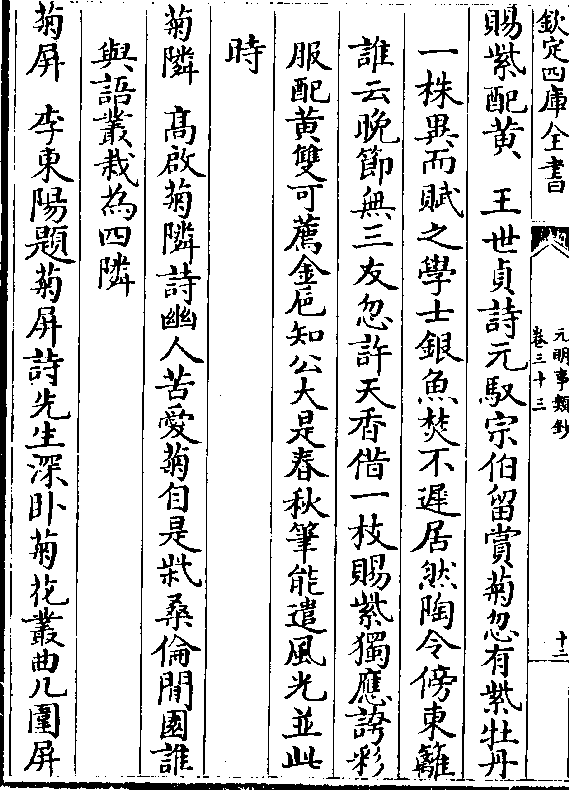 欽定四庫全書
元明事類鈔
卷三十三
十二
賜紫配黄　王世貞詩元馭宗伯留賞菊忽有紫牡丹
一株異而賦之學士銀魚焚不遲居然陶令傍東籬
誰云晚節無三友忽許天香借一枝賜紫獨應誇彩
服配黄雙可薦金巵知公大是春秋筆能遣風光並此
時
菊隣　髙啟菊隣詩幽人苦愛菊自是柴桑倫閒園誰
與語叢栽為四隣
菊屏　李東陽題菊屏詩先生深卧菊花叢曲几圍屏